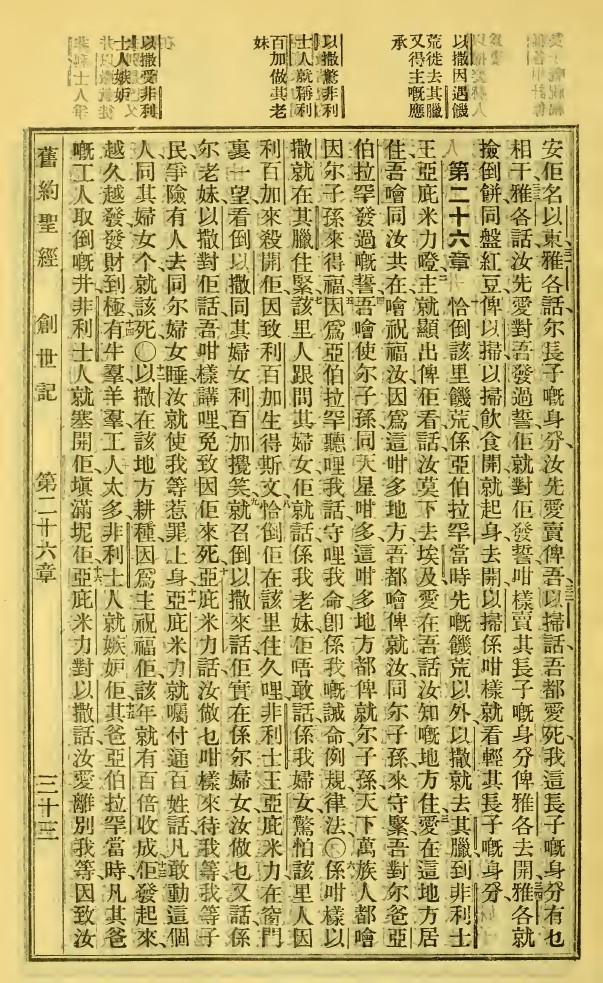 以撒因遇饑
荒徙去其臘
又得主嘅應
承
以撒驚非利
士人就稱利
百加做其老
妹
以撒受非利
士人嫉妒
安佢名以東雅各話尔長子嘅身分汝先愛賣俾吾以掃話吾都愛死我這長子嘅身分有乜
相干雅各話汝先愛對吾發過誓佢就對佢發誓咁樣賣其長子嘅身分俾雅各去開雅各就
撿倒餅同盤紅豆俾以掃以掃飲食開就起身去開以掃係咁樣就看輕其長子嘅身分
第二十六章 恰倒該里饑荒係亞伯拉罕當時先嘅饑荒以外以撒就去其臘到非利士
王亞庇米力瞪主就顯出俾佢看話汝莫下去埃及愛在吾話汝知嘅地方住愛在這地方居
住吾噲同汝共在噲祝福汝因爲這咁多地方吾都噲俾就汝同尔子孫來守緊吾對尔爸亞
伯拉罕發過嘅誓吾噲使尔子孫同天星咁多這咁多地方都俾就尔子孫天下萬族人都噲
因尔子孫來得福因爲亞伯拉罕聽哩我話守哩我命卽係我嘅誡命例規律法〇係咁樣以
撒就在其臘住緊該里人跟問其婦女佢就話係我老妹佢唔敢話係我婦女驚怕該里人因
利百加來殺開佢因致利百加生得斯文恰倒佢在該里住久哩非利士王亞庇米力在窗門
裏一望看倒以撒同其婦女利百加攪笑就召倒以撒來話佢實在係尔婦女汝做乜又話係
尔老妹以撒對佢話吾咁樣講哩免致因佢來死亞庇米力話汝做乜咁樣來待我等我等子
民爭險有人去同尔婦女睡汝就使我等惹罪上身亞庇米力就囑付通百姓話凡敢動這個
人同其婦女个就該死〇以撒在該地方耕種因爲主祝福佢該年就有百倍收成佢發起來
越久越發發財到極有牛羣羊羣工人太多非利士人就嫉妒佢其爸亞伯拉罕當時凡其爸
嘅工人取倒嘅井非利士人就塞開佢塡滿坭佢亞庇米力對以撒話汝愛離別我等因致汝
舊約聖經 創世記 第二十六章 三十三